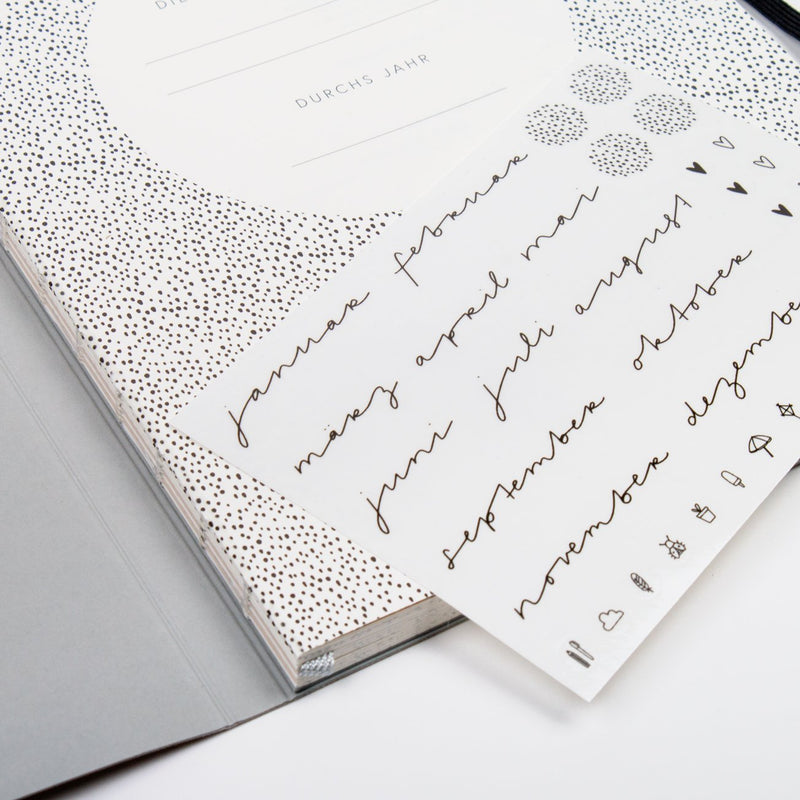 DURCHS JAHR
januar februar
märz april mai
juni juli august
september oktober
november